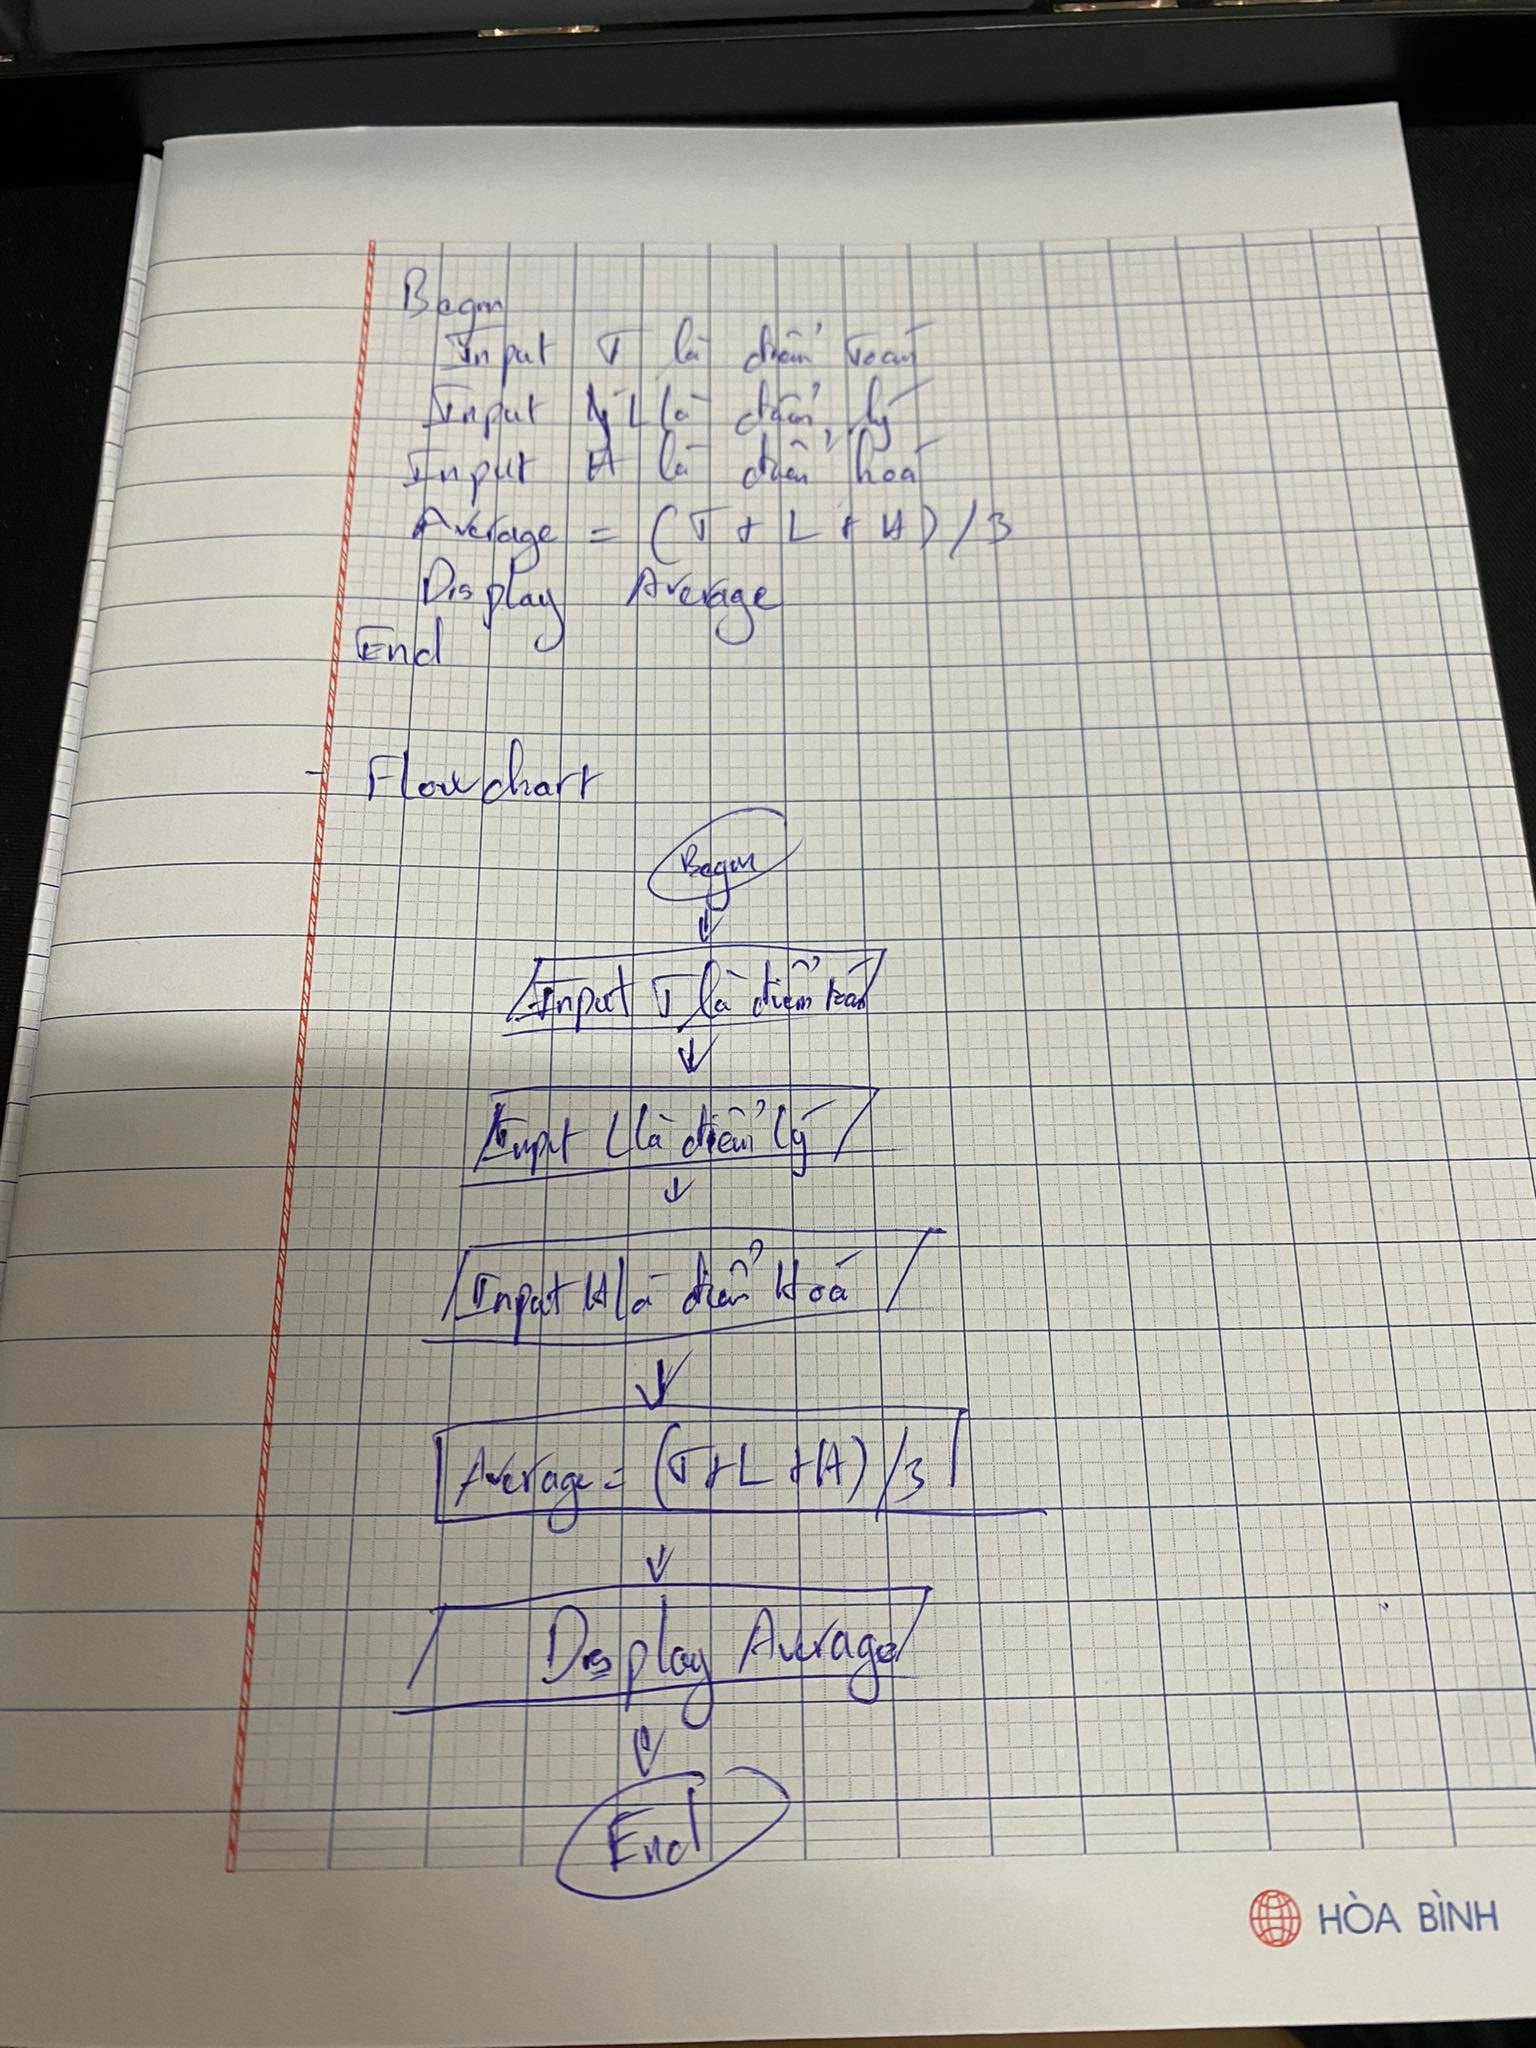 Begin
Input T là điểm Toán
Input L là điểm lý
Input H là điểm hoá
Average = (T + L + H) / 3
Display Average
End
- Flowchart
Begin
Input T là điểm toán
Input L là điểm lý
Input H là điểm Hoá
Average = (T + L + H) / 3
Display Average
End
HÒA BÌNH